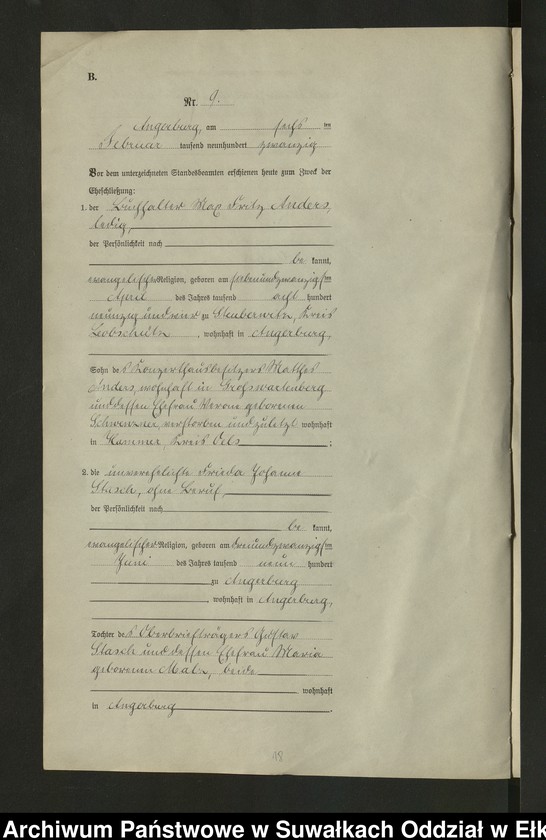 B.
Nr. 9.
Angerburg, am sechsten
Februar tausend neunhundert zwanzig
Vor dem unterzeichneten Standesbeamten erschienen heute zum Zweck der
Eheschließung:
1. der Buchhalter Max Fritz Anders,
ledig,
der Persönlichkeit nach
be kannt,
evangelischer Religion, geboren am siebenundzwanzigsten
April des Jahres tausend acht hundert
neunzig und vier zu Steuberwitz, Kreis
Leobschütz, wohnhaft in Angerburg,
Sohn des Konzerthausbesitzers Mathes
Anders, wohnhaft in Großwartenberg
und dessen Ehefrau geborenen
verstorben und zuletzt wohnhaft
in Hammer, Kreis Oels;
2. die unverehelichte Frieda Johanne
Stasch, ohne Beruf,
der Persönlichkeit nach
be kannt,
evangelischer Religion, geboren am dreiundzwanzigsten
Juni des Jahres tausend neun hundert
zu Angerburg
, wohnhaft in Angerburg,
Tochter des Oberbriefträgers Gustav
Stasch und dessen Ehefrau Maria
geborenen beide
wohnhaft
in Angerburg.
18
Archiwum Państwowe w Suwałkach Oddział w Ełk